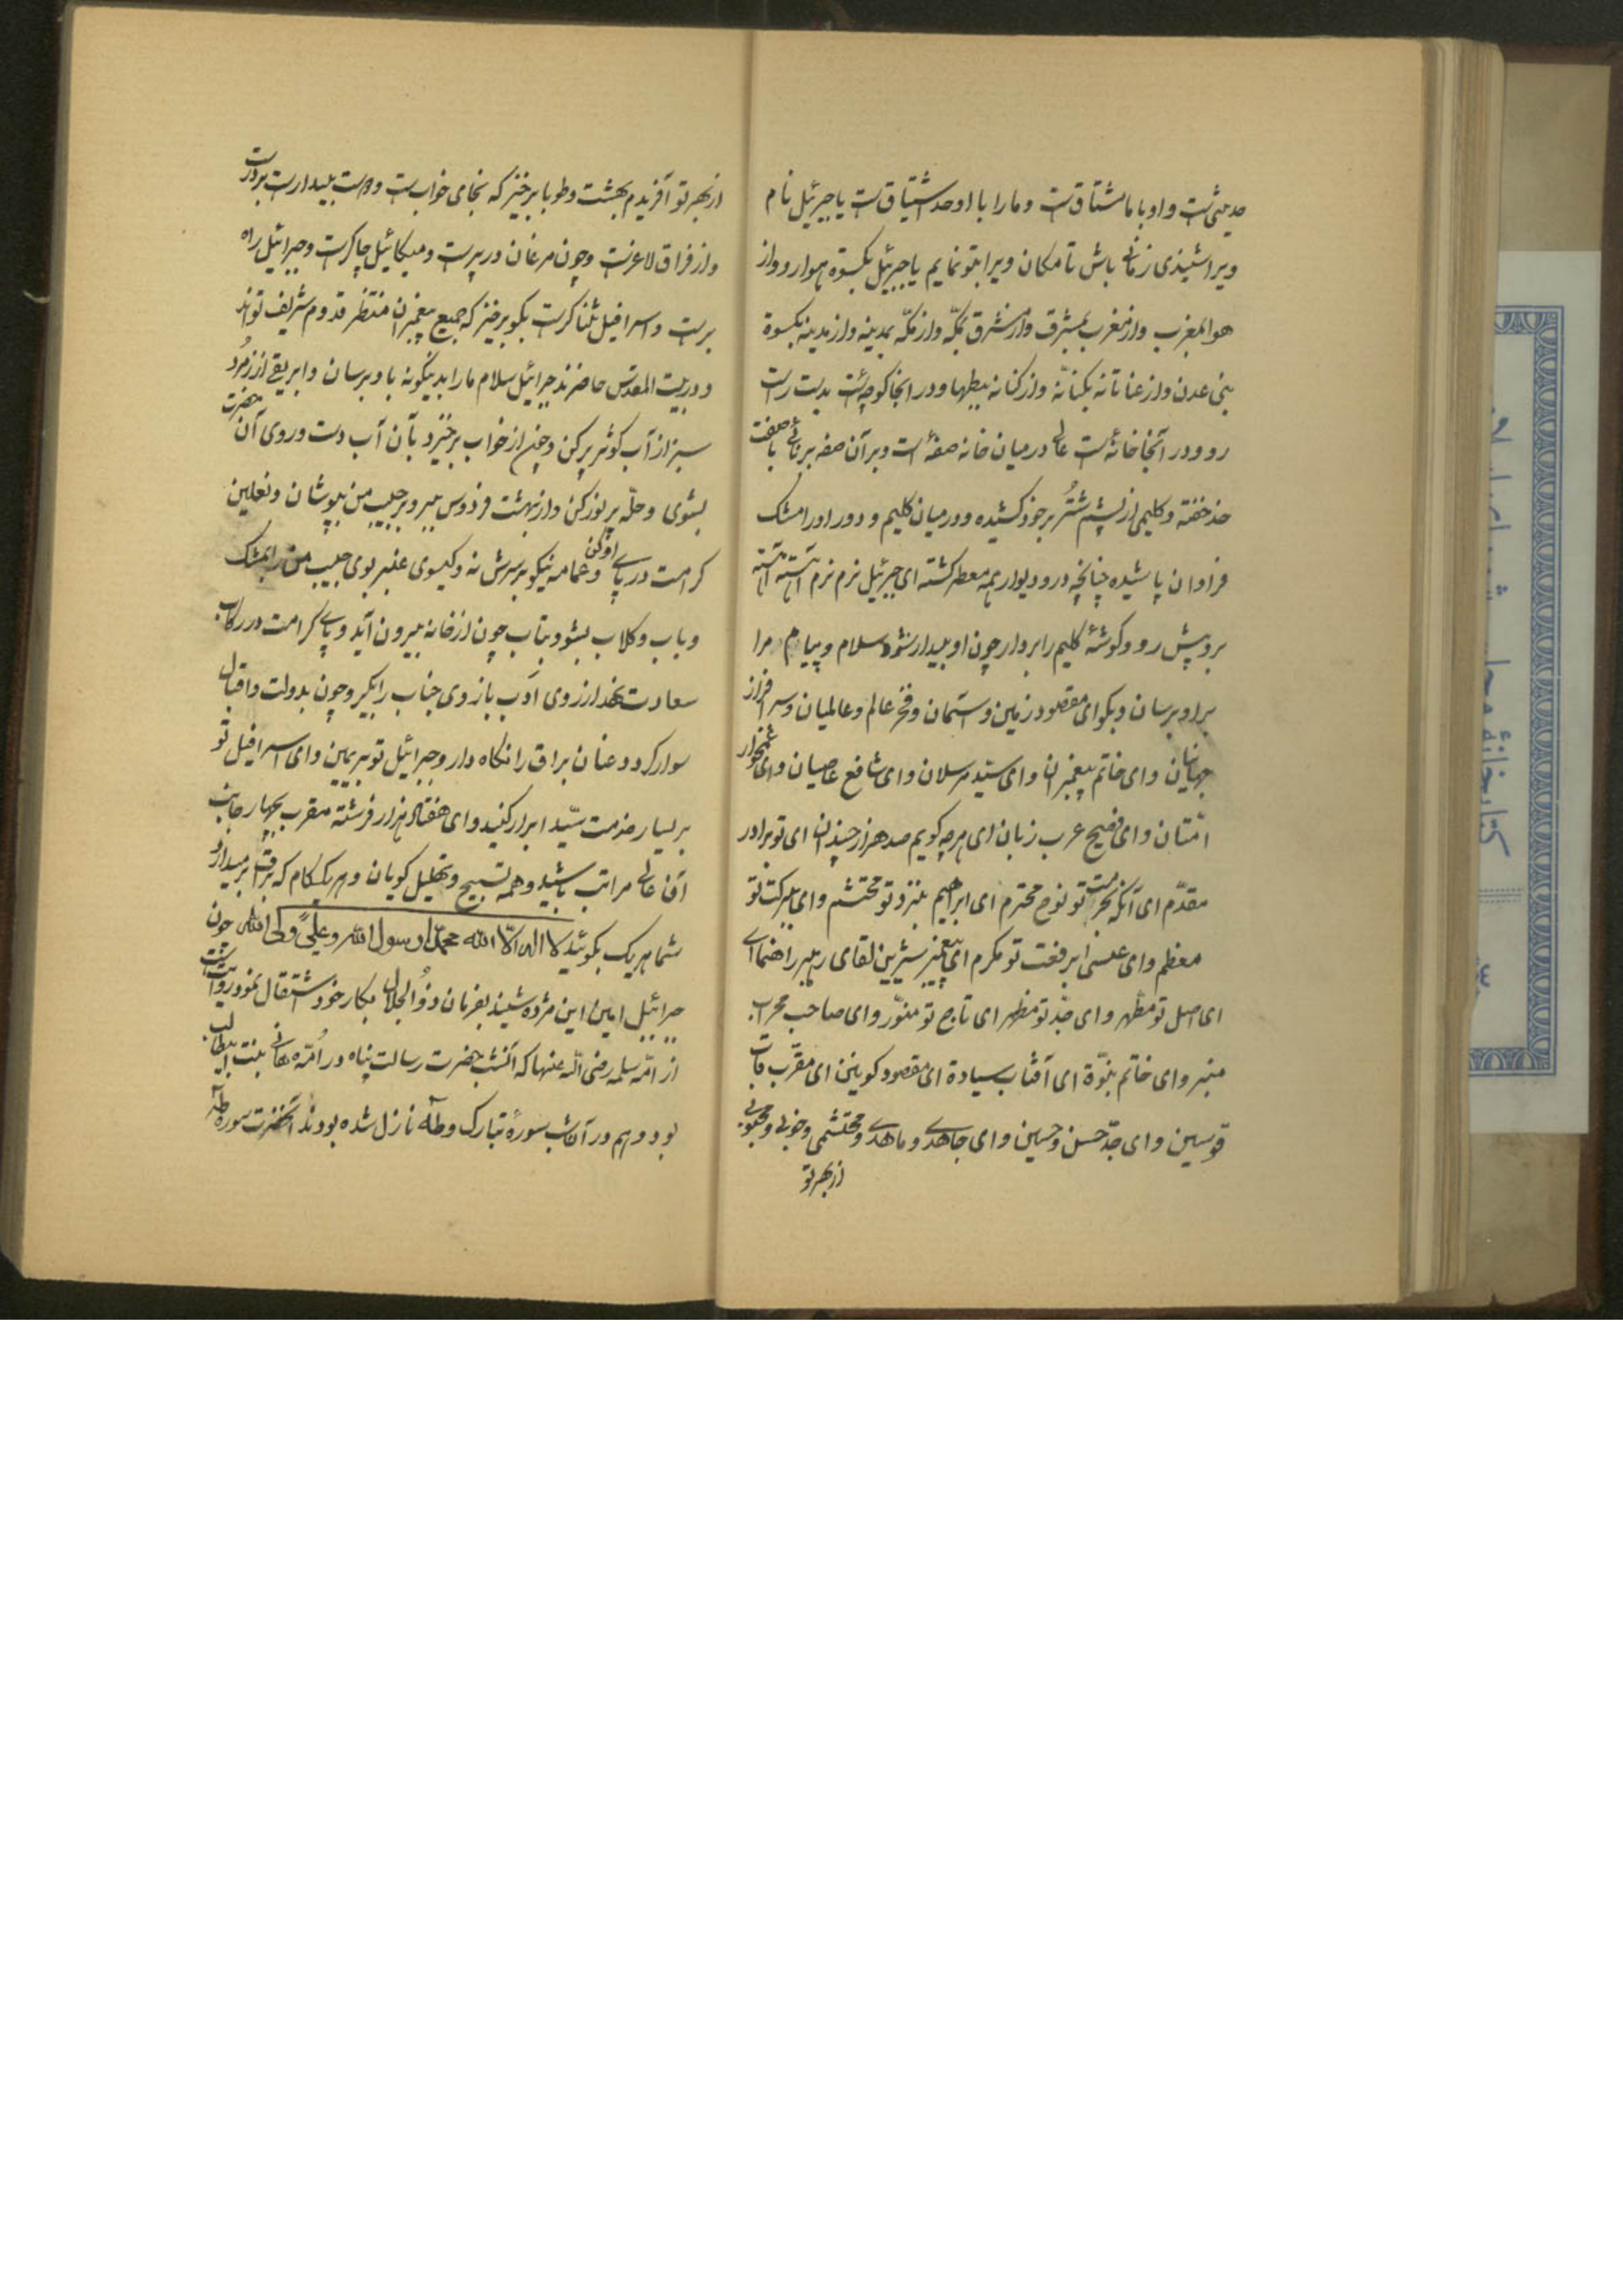 مدینی است و او با ما مشتاق است و ما را با او صد اشتیاق است یا جبرئیل نام
ویرا شنیدی زمانی باش تا مکان ویرا بتو نمایم یا جبرئیل بکسوة هوا رو و از
هوا بمغرب و از مغرب بمشرق و از مشرق بمکّه و از مکّه بمدینه و از مدینه بکسوة
بنی عدن و از بکنانه و از کنانه ببطها و در انجا کوچه‌ئست بدست راست
رو و در آنجا خانه‌ئست عالی در میان خانه صفه‌ٔ است و بر آن صفه برنائی با صفت
خد خفته و کلیمی از پشم شتُر بر خود کشیده و در میان کلیم و دور او را مشک
فراوان پاشیده چنانچه در و دیوار همه معطر کشته ای جبرئیل نرم نرم آهسته آهسته
برو پیش رو و کوشهٔ کلیم را بردار چون او بیدار شود سلام و پیام مرا
براو برسان و بکو ای مقصود زمین و آسمان و فخر عالم و عالمیان و سرافراز
جهانیان و ای خاتم پیغمبران و ای سیّد مرسلان و ای شافع عاصیان و ای غمخوار
امّتان و ای فصیح عرب زبان ای هرچه کویم صد هزار چندان ای تو برادر
مقدّم ای آنکه بحرمت تو نوح محترم ای ابرهیم بنزد تو محتشم و ای ببرکت تو
معظم و ای عیسی ابر فخت تو مکرم ای پیغمبر شیرین لقای رهبر راهنما ای
ای اصل تو مطّهر و ای جدّ تو مظهر ای تاج تو منوّر و ای صاحب محراب
منبر و ای خاتم نبوّة ای آفتاب سیادة ای مقصود کونین ای مقرّب قاب
قوسین و ای جدّ حسن و حسین و ای جاهدی و ماهدی و محتشمی و خوبی و محبوبی
از بهر تو
از بهر تو آفریدم بهشت و طوبا برخیز که نجای خواب است و دوست بیدار است بر درت
و از فراق لاغر است و چون مرغان در پر است و میکائیل چاکر است و جبرائیل راه
بر است و اسرافیل ثناکر است بکو برخیز که جمیع پیغمبران منتظر قدوم شریف تواند
و در بیت المقدس حاضرند جبرائیل سلام ما را بدینکونه باو برسان و ابریقی از زمُرد
سبز از آب کوثر پر کن و چون از خواب برخیزد بآن آب دست و روی آن حضرت
بشوی و حلّه پر نور کن و از بهشت فردوس ببر و بر حبیب من بپوشان و نعلین
کرامت در پای او کن و عمامه نیکو بر سرش نه و کیسوی عنبر بوی حبیب من را بمشک
و باب و کلاب بشو و بتاب چون از خانه بیرون آید و پای کرامت در رکاب
سعادت نهد از روی ادب بازوی جناب را بکیر و چون بدولت و اقبال
سوار کردد عنان براق را نکاه دار و جبرائیل تو بر یمین و ای اسرافیل تو
بر یسار خدمت سیّد ابرار کنید و ای هفتاد هزار فرشته مقرب بچهار جانب
آن عالی مراتب باشید و همه تسبیح و تهلیل کویان و هر یک کام که براق برمیدارد
شما هر یک بکوئید لا اله الّا الله محمّدا رسول الله و علیً ولی الله چون
جبرائیل امین این مژده شنید بفرمان ذوُالجلال بکار خود اشتقال نمود روایت است
از امّه سلمه رضی اللّه عنها که آنشب حضرت رسالت پناه در اُمّه هانی بنت ابیطالب
بود و هم در آن شب سورهٔ تبارک و طه نازل شده بودند آنحضرت سوره طه